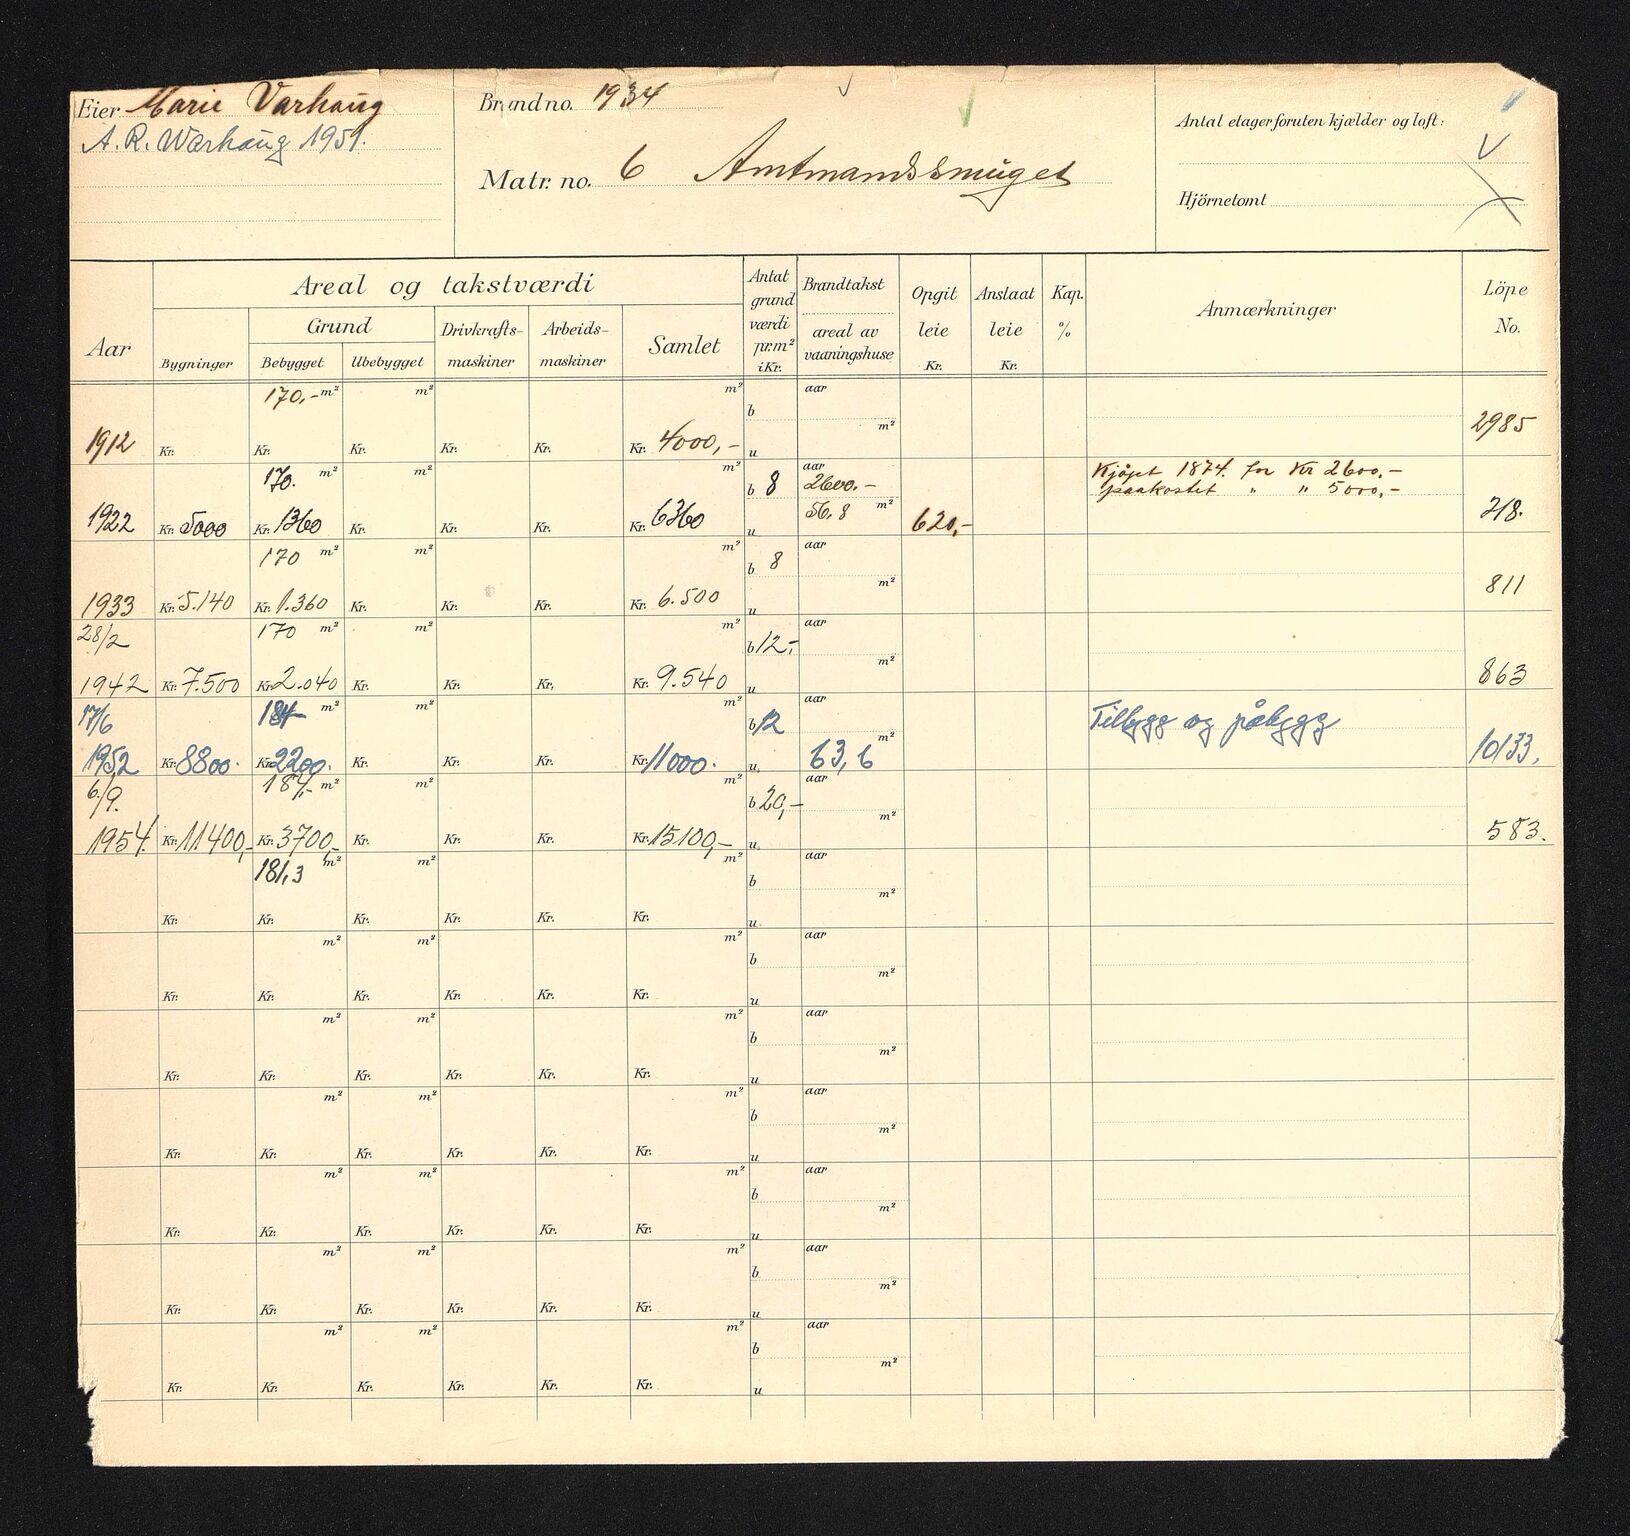 Eier Marie Varhaug
A. R. Warhaug 1951.
Brandno. 1934
Matr. no. 6 Amtmandssmuget
Antal etager foruten kjælder og loft:
Hjörnetomt
Aar
Areal og takstværdi
Bygninger
Grund
Bebygget Ubebygget
Drivkrafts-maskiner
Arbeids-maskiner
Samlet
Antat grund værdi pr.m² i Kr.
Brandtakst
areal av vaaningshuse
Opgit leie Kr.
Anslaat leie Kr.
Kap. %
Anmærkninger
Löpe No.
170,- m² m² m² aar
b m²
1912 Kr. Kr. Kr. Kr. Kr. Kr. 4000,- u 2985
170. m² m² m² b 8 aar 2600.- Kjøpt 1874. for Kr 2600,-
56,8 m² paakostet " " 5000,-
1922 Kr. 5000 Kr. 1360 Kr. Kr. Kr. Kr. 6360 u 620,- 718.
170 m² m² m² b 8 aar
m²
1933 Kr. 5.140 Kr. 1.360 Kr. Kr. Kr. Kr. 6.500 u 811
28/2 170 m² m² m² b 12,- aar
m²
1942 Kr. 7.500 Kr. 2.040 Kr. Kr. Kr. Kr. 9.540 u 863
17/6 184 m² m² m² b 12 aar Tilbygg og påbygg
m²
1952 Kr. 8800. Kr. 2200. Kr. Kr. Kr. Kr. 11000. u 63,6 10133.
6/9. 187,- m² m² m² b 20,- aar
m²
1954. Kr. 11400,- Kr. 3700,- Kr. Kr. Kr. Kr. 15100,- u 583.
181,3 m² m² m² aar
b m²
Kr. Kr. Kr. Kr. Kr. Kr. u
m² m² m² aar
b m²
Kr. Kr. Kr. Kr. Kr. Kr. u
m² m² m² aar
b m²
Kr. Kr. Kr. Kr. Kr. Kr. u
m² m² m² aar
b m²
Kr. Kr. Kr. Kr. Kr. Kr. u
m² m² m² aar
b m²
Kr. Kr. Kr. Kr. Kr. Kr. u
m² m² m² aar
b m²
Kr. Kr. Kr. Kr. Kr. Kr. u
m² m² m² aar
b m²
Kr. Kr. Kr. Kr. Kr. Kr. u